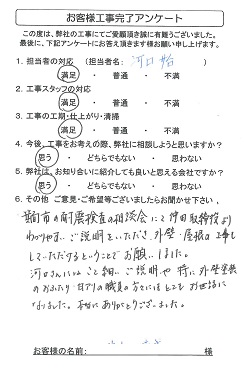 お客様工事完了アンケート
この度は、弊社の工事にてご愛顧頂き誠に有難うございました。
最後に、下記アンケートにお答え頂きます様お願い申し上げます。
1. 担当者の対応 (担当者名: 河口 )
満足 ・ 普通 ・ 不満
2. 工事スタッフの対応
満足 ・ 普通 ・ 不満
3. 工事の工期・仕上がり・清掃
満足 ・ 普通 ・ 不満
4. 今後、工事をお考えの際、弊社に相談しようと思いますか?
思う ・ どちらでもない ・ 思わない
5. 弊社は、お知り合いに紹介しても良いと思える会社ですか?
思う ・ どちらでもない ・ 思わない
6. その他 ご意見・ご希望等ございましたらお聞かせ下さい。
市の耐震検査の相談会にて 取締役より
わかりやすいご説明をいただき、外壁・屋根の工事も
していただけるということでお願いしました。
河口さんにはいろいろ細かいご説明や 特に外壁塗装
の 職員の方々にはとてもお世話に
なりました。本当にありがとうございました。
お客様の名前: 様